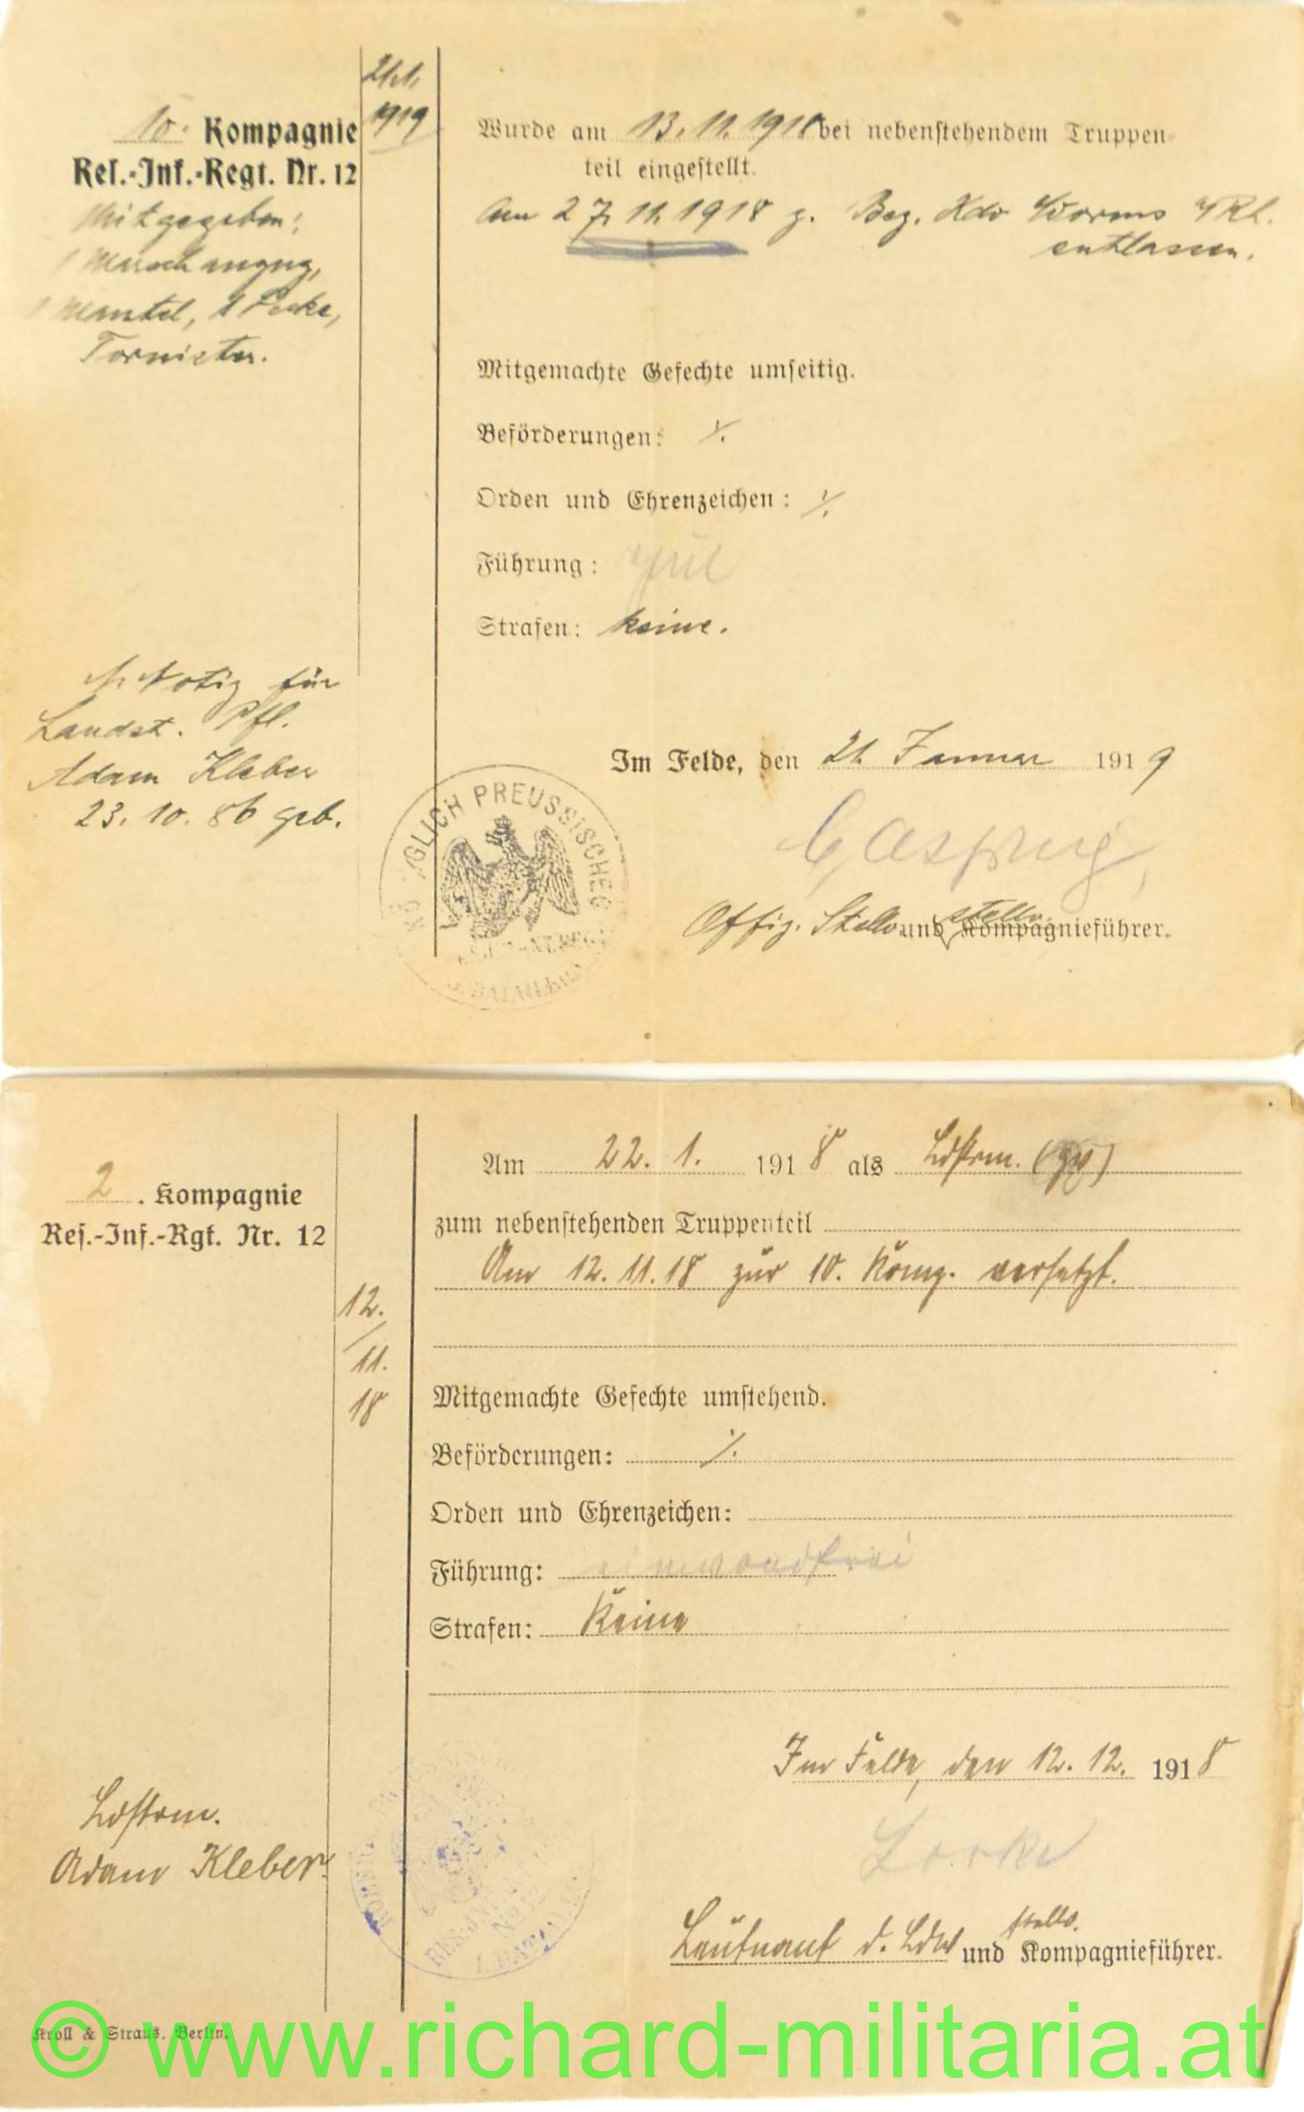 21.1.
1919
10. Kompagnie
Res.-Inf.-Regt. Nr. 12
Mitgegeben:
1 Marschanzug,
1 Mantel, 1 Decke,
Tornister.
Wurde am 13.11.1918 bei nebenstehendem Truppen-
teil eingestellt.
Am 27.11.1918 z. Bez. Kdo Worms a/Rh.
entlassen.
Mitgemachte Gefechte umseitig.
Beförderungen: ./.
Orden und Ehrenzeichen: ./.
Führung: gut
Strafen: keine.
Notiz für
Landst. Pfl.
Adam Kleber
23.10.86 geb.
Im Felde, den 21. Januar 1919
KÖNIGLICH PREUSSISCHES
Offiz. Stellv. und stellv. Kompagnieführer.
2. Kompagnie
Res.-Inf.-Rgt. Nr. 12
12.
11.
18
Am 22. 1. 1918 als Ldstrm. (gv)
zum nebenstehenden Truppenteil
Am 12.11.18 zur 10. Komp. versetzt.
Mitgemachte Gefechte umstehend.
Beförderungen: ./.
Orden und Ehrenzeichen:
Führung: einwandfrei
Strafen: Keine
Im Felde, den 12. 12. 1918
Ldstrm.
Adam Kleber
Leutnant d. Ldw und stellv. Kompagnieführer.
Kroll & Straus, Berlin.
© www.richard-militaria.at